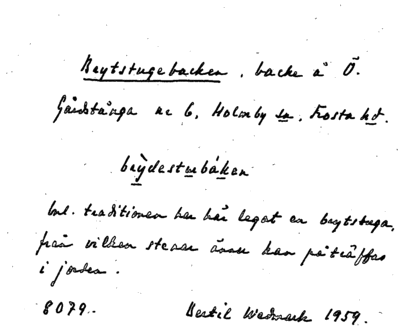 Brytstugebacken, backe å Ö.
Gårdstånga nr 6, Holmby sn, Frosta hd.
brỳdestubákan
Enl. traditionen har här legat en brytstuga,
från vilken stenar ännu kan påträffas
i jorden.
8079. Bertil Wedmark 1959.